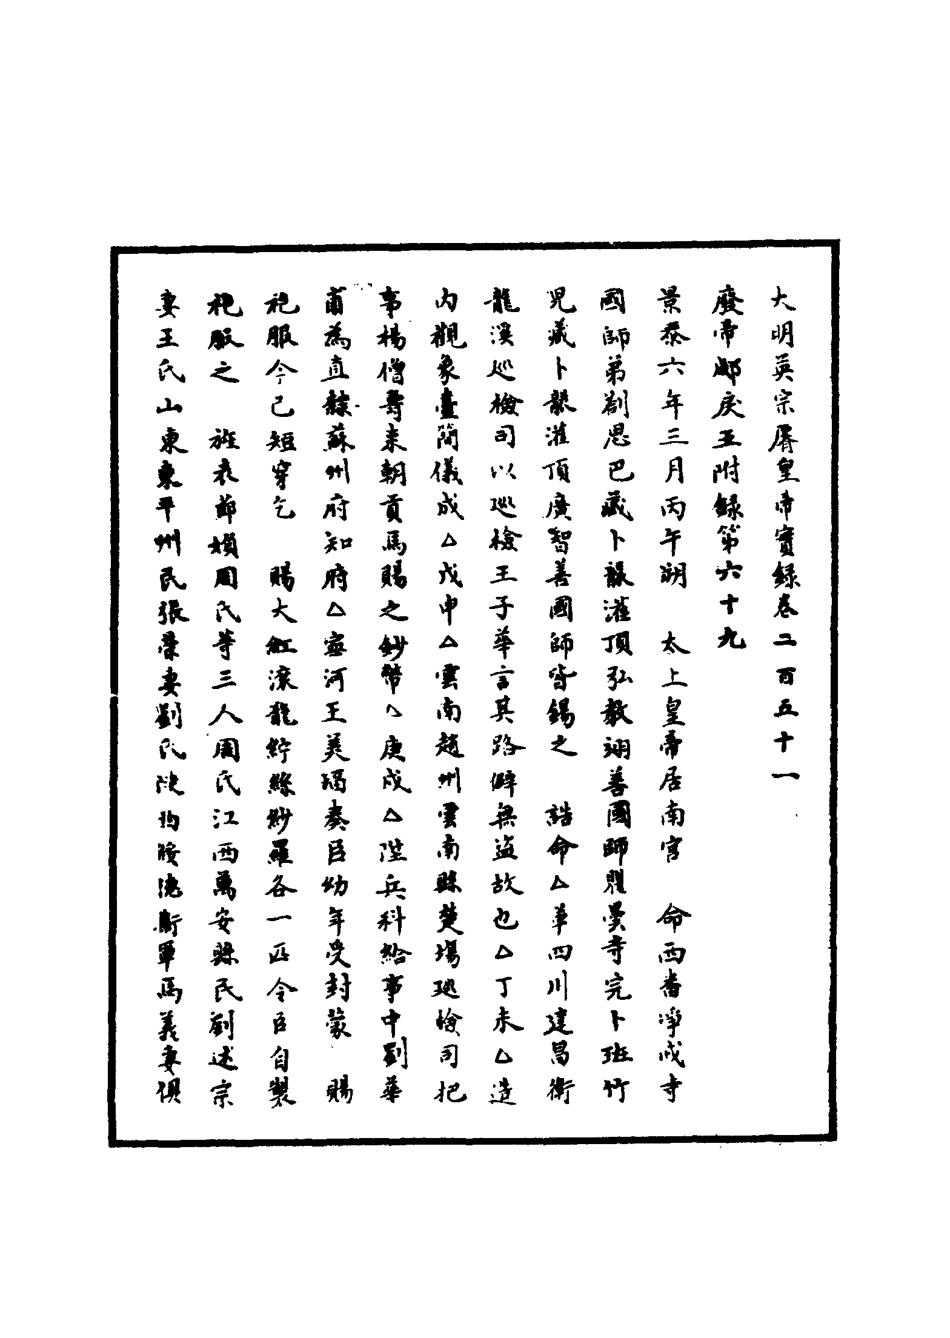 大明英宗睿皇帝實錄卷二百五十一
廢帝郕戾王附錄第六十九
景泰六年三月丙午朔　太上皇帝居南宮　命西番淨戒寺
國師弟劄思巴藏卜襲灌頂弘教翊善國師瞿曇寺完卜班竹
兒藏卜襲灌頂廣智善國師皆錫之　誥命△革四川建昌衛
龍溪巡檢司以巡檢王子華言其路僻無盜故也△丁未△造
內觀象臺簡儀成△戊申△雲南趙州雲南縣楚場巡檢司把
事楊僧壽來朝貢馬賜之鈔幣△庚戌△陞兵科給事中劉華
甫為直隸蘇州府知府△寧河王美堨奏臣幼年受封蒙　賜
袍服今已短穿乞　賜大紅滚龍紵絲紗羅各一匹令臣自製
袍服之　旌表節婦周氏等三人周氏江西萬安縣民劉述宗
妻王氏山東東平州民張榮妻劉氏陝西綏德衛軍馬義妻俱